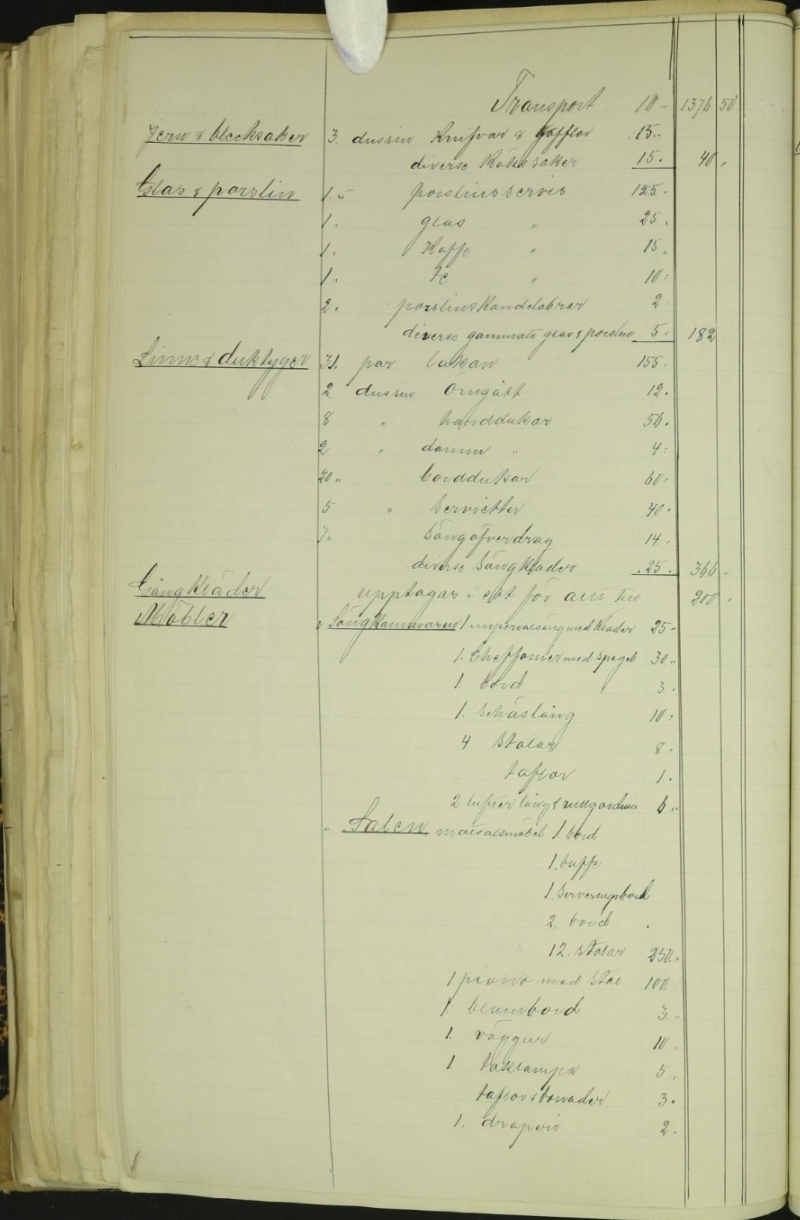 Transport 10 " 1376 50
Jern & blecksaker 3 dussin Knifvar & gafflar 15 "
diverse Kökssaker 15 " 40 "
Glas & porslin 1 " porslinsservis 125 "
1 " glas " 25 "
1 " Kaffe " 15 "
1 " Te " 10 "
2 " porslins Kandelabrar 2 "
diverse gammalt glas & porslin 5 " 182
Linne & duktyger 31 par lakan 155 "
2 dussin Örngått 12 "
8 " handdukar 56 "
2 " damm " 4 "
20 " borddukar 60 "
5 " Servietter 40 "
7 " Sängöfverdrag 14 "
diverse Sängkläder 25 " 366 "
Gångkläder upptagas i ett för allt till 200 "
Möbler
" Sängkammaren 1 imperialsäng med Kläder 25 "
1 Cheffonier med spegel 30 "
1 bord 3 "
1 Schäslång 10 "
4 Stolar 8 "
taflor 1 "
2 lufter lång & rullgardiner 6 "
" Salen matsalsmöbel 1 bord
1 buffe
1 Serveringsbord
2 bord
12 Stolar 250 "
1 piano med Stol 100
1 blombord 3 "
1 väggur 10 "
1 taklampa 5 "
taflor & bonader 3 "
1 draperi 2 "